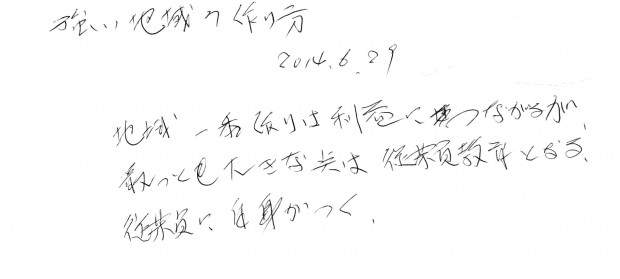 強い地域の作り方
2014.6.29
地域一番作りは利益につながるが
最っとも大きな点は従業員教育となる、
従業員に自身がつく、